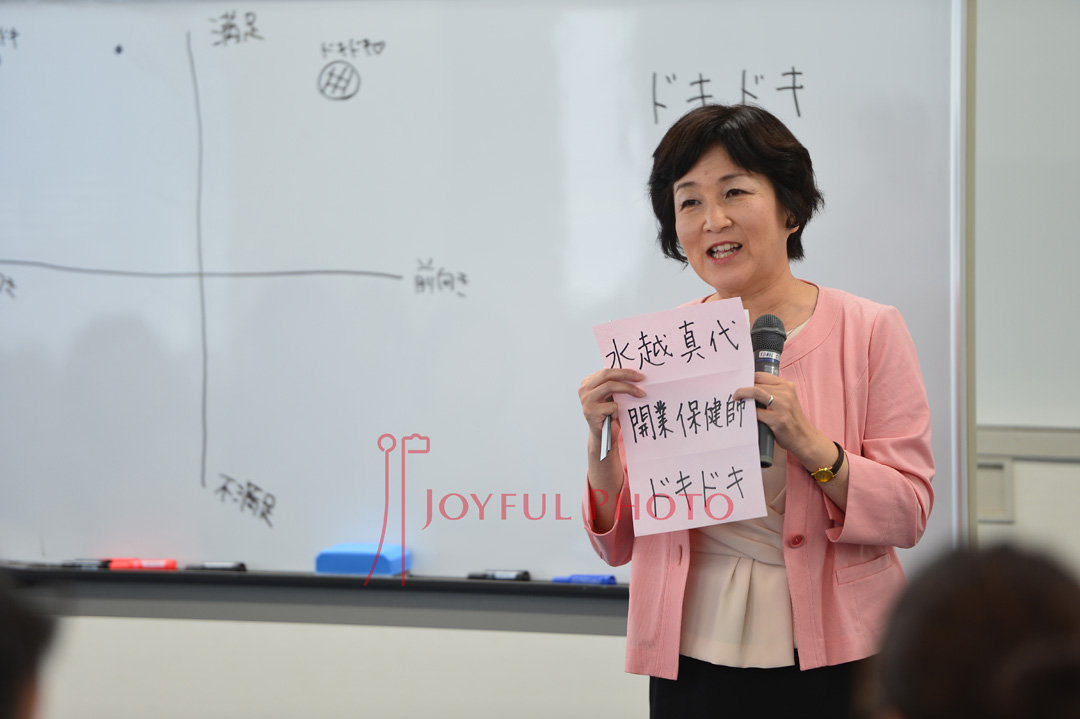 満足
ドキドキ
ドキドキ
前向き
不満足
水越真代
開業保健師
ドキドキ
JOYFUL PHOTO